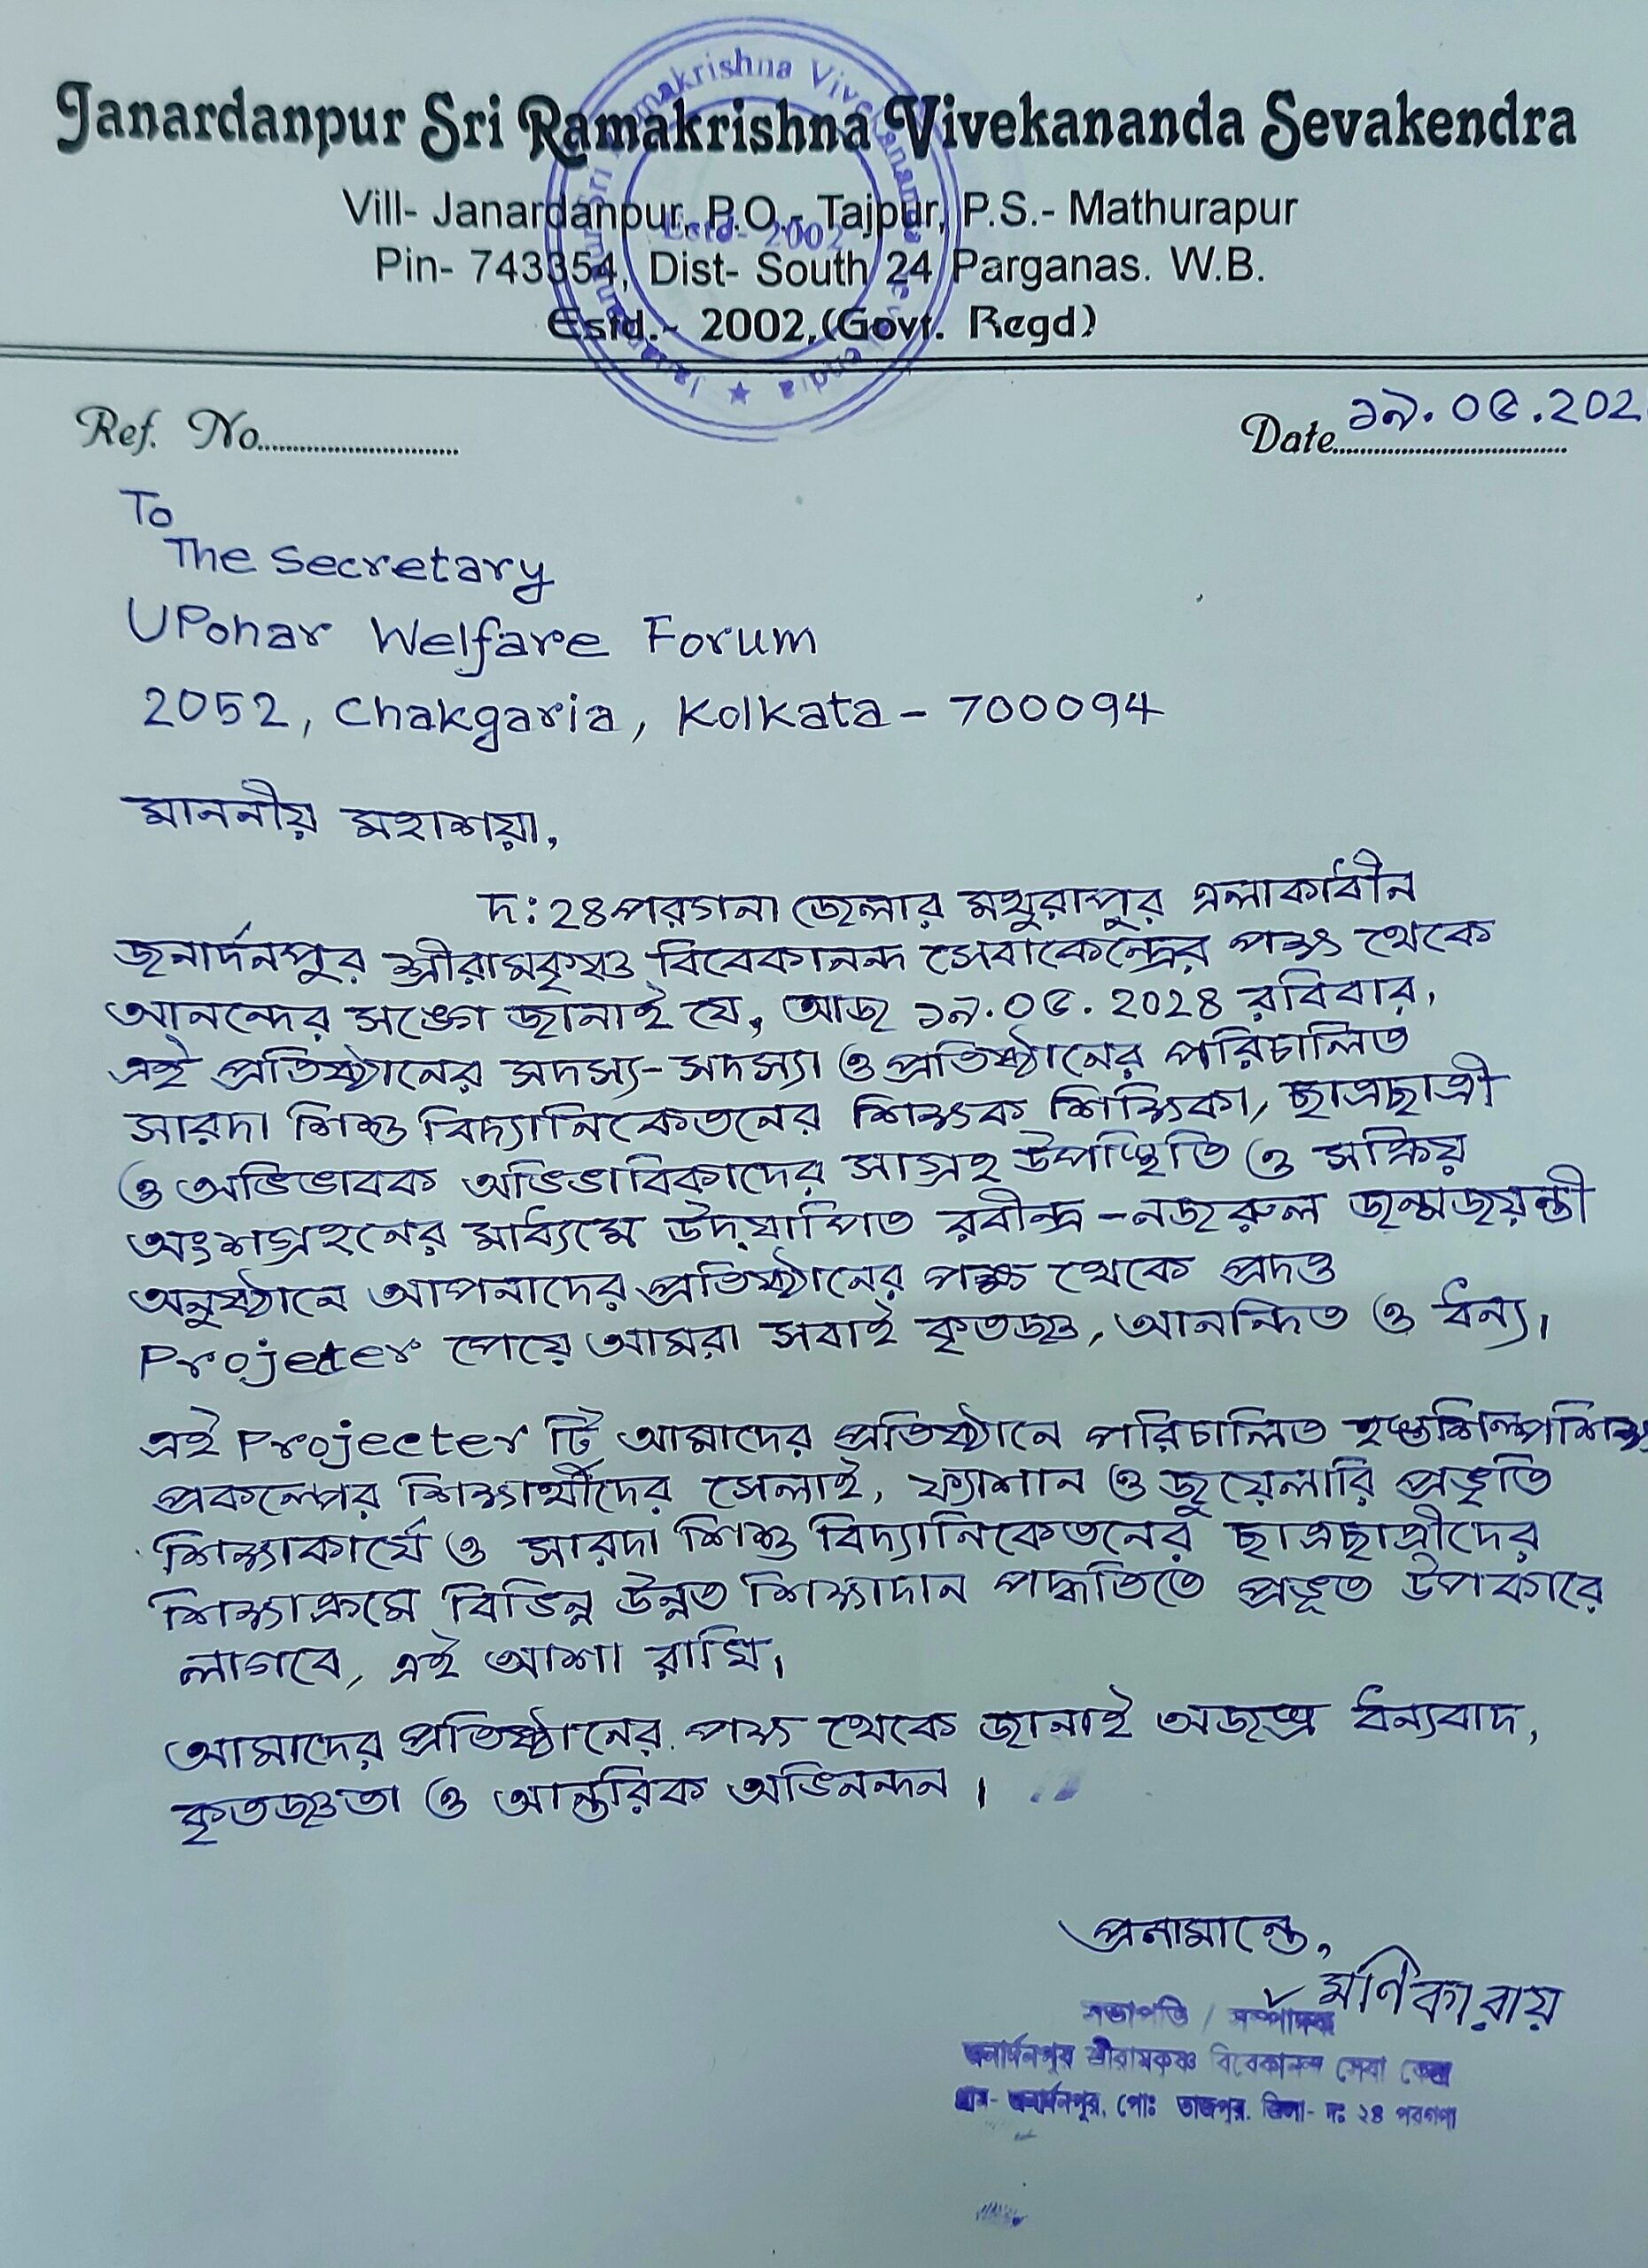 Janardanpur Sri Ramakrishna Vivekananda Sevakendra
Vill- Janardanpur, P.O.- Tajpur, P.S.- Mathurapur
Pin- 743354, Dist- South 24 Parganas. W.B.
Estd.- 2002, (Govt. Regd)
Estd- 2002
Ref. No.
Date ১৯.০৫.202
To
The Secretary
UPohar Welfare Forum
2052, Chakgaria, Kolkata - 700094
মাননীয় মহাশয়া,
দ: ২৪পরগনা জেলার মথুরাপুর এলাকাধীন
জনার্দনপুর শ্রীরামকৃষ্ণ বিবেকানন্দ সেবাকেন্দ্রের পক্ষ থেকে
আনন্দের সঙ্গে জানাই যে, আজ ১৯.০৫.২০২৪ রবিবার,
এই প্রতিষ্ঠানের সদস্য-সদস্যা ও প্রতিষ্ঠানের পরিচালিত
সারদা শিশু বিদ্যানিকেতনের শিক্ষক শিক্ষিকা, ছাত্রছাত্রী
ও অভিভাবক অভিভাবিকাদের সাগ্রহ উপস্থিতি ও সক্রিয়
অংশগ্রহনের মাধ্যমে উদ্‌যাপিত রবীন্দ্র-নজরুল জন্মজয়ন্তী
অনুষ্ঠানে আপনাদের প্রতিষ্ঠানের পক্ষ থেকে প্রদত্ত
Projecter পেয়ে আমরা সবাই কৃতজ্ঞ, আনন্দিত ও ধন্য।
এই Projecter টি আমাদের প্রতিষ্ঠানে পরিচালিত হস্তশিল্পশিক্ষা
প্রকল্পের শিক্ষার্থীদের সেলাই, ফ্যাশান ও জুয়েলারি প্রভৃতি
শিক্ষাকার্যে ও সারদা শিশু বিদ্যানিকেতনের ছাত্রছাত্রীদের
শিক্ষাক্রমে বিভিন্ন উন্নত শিক্ষাদান পদ্ধতিতে প্রভূত উপকারে
লাগবে, এই আশা রাখি।
আমাদের প্রতিষ্ঠানের পক্ষ থেকে জানাই অজস্র ধন্যবাদ,
কৃতজ্ঞতা ও আন্তরিক অভিনন্দন।
প্রনামান্তে,
মণিকা রায়
সভাপতি / সম্পাদক
জনার্দনপুর শ্রীরামকৃষ্ণ বিবেকানন্দ সেবা কেন্দ্র
গ্রাম- জনার্দনপুর, পোঃ তাজপুর, জিলা- দঃ ২৪ পরগণা